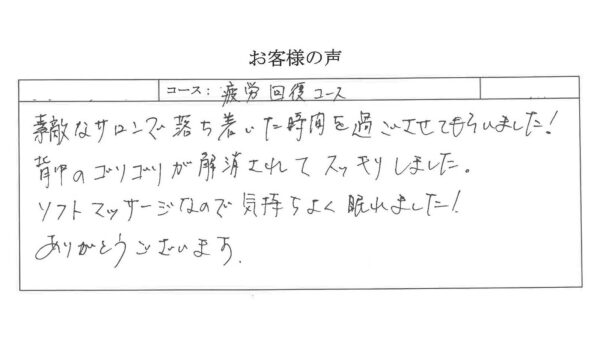 お客様の声
コース: 疲労回復コース
素敵なサロンで落ち着いた時間を過ごさせてもらいました!
背中のゴリゴリが解消されてスッキリしました。
ソフトマッサージなので気持ちよく眠れました!
ありがとうございます.